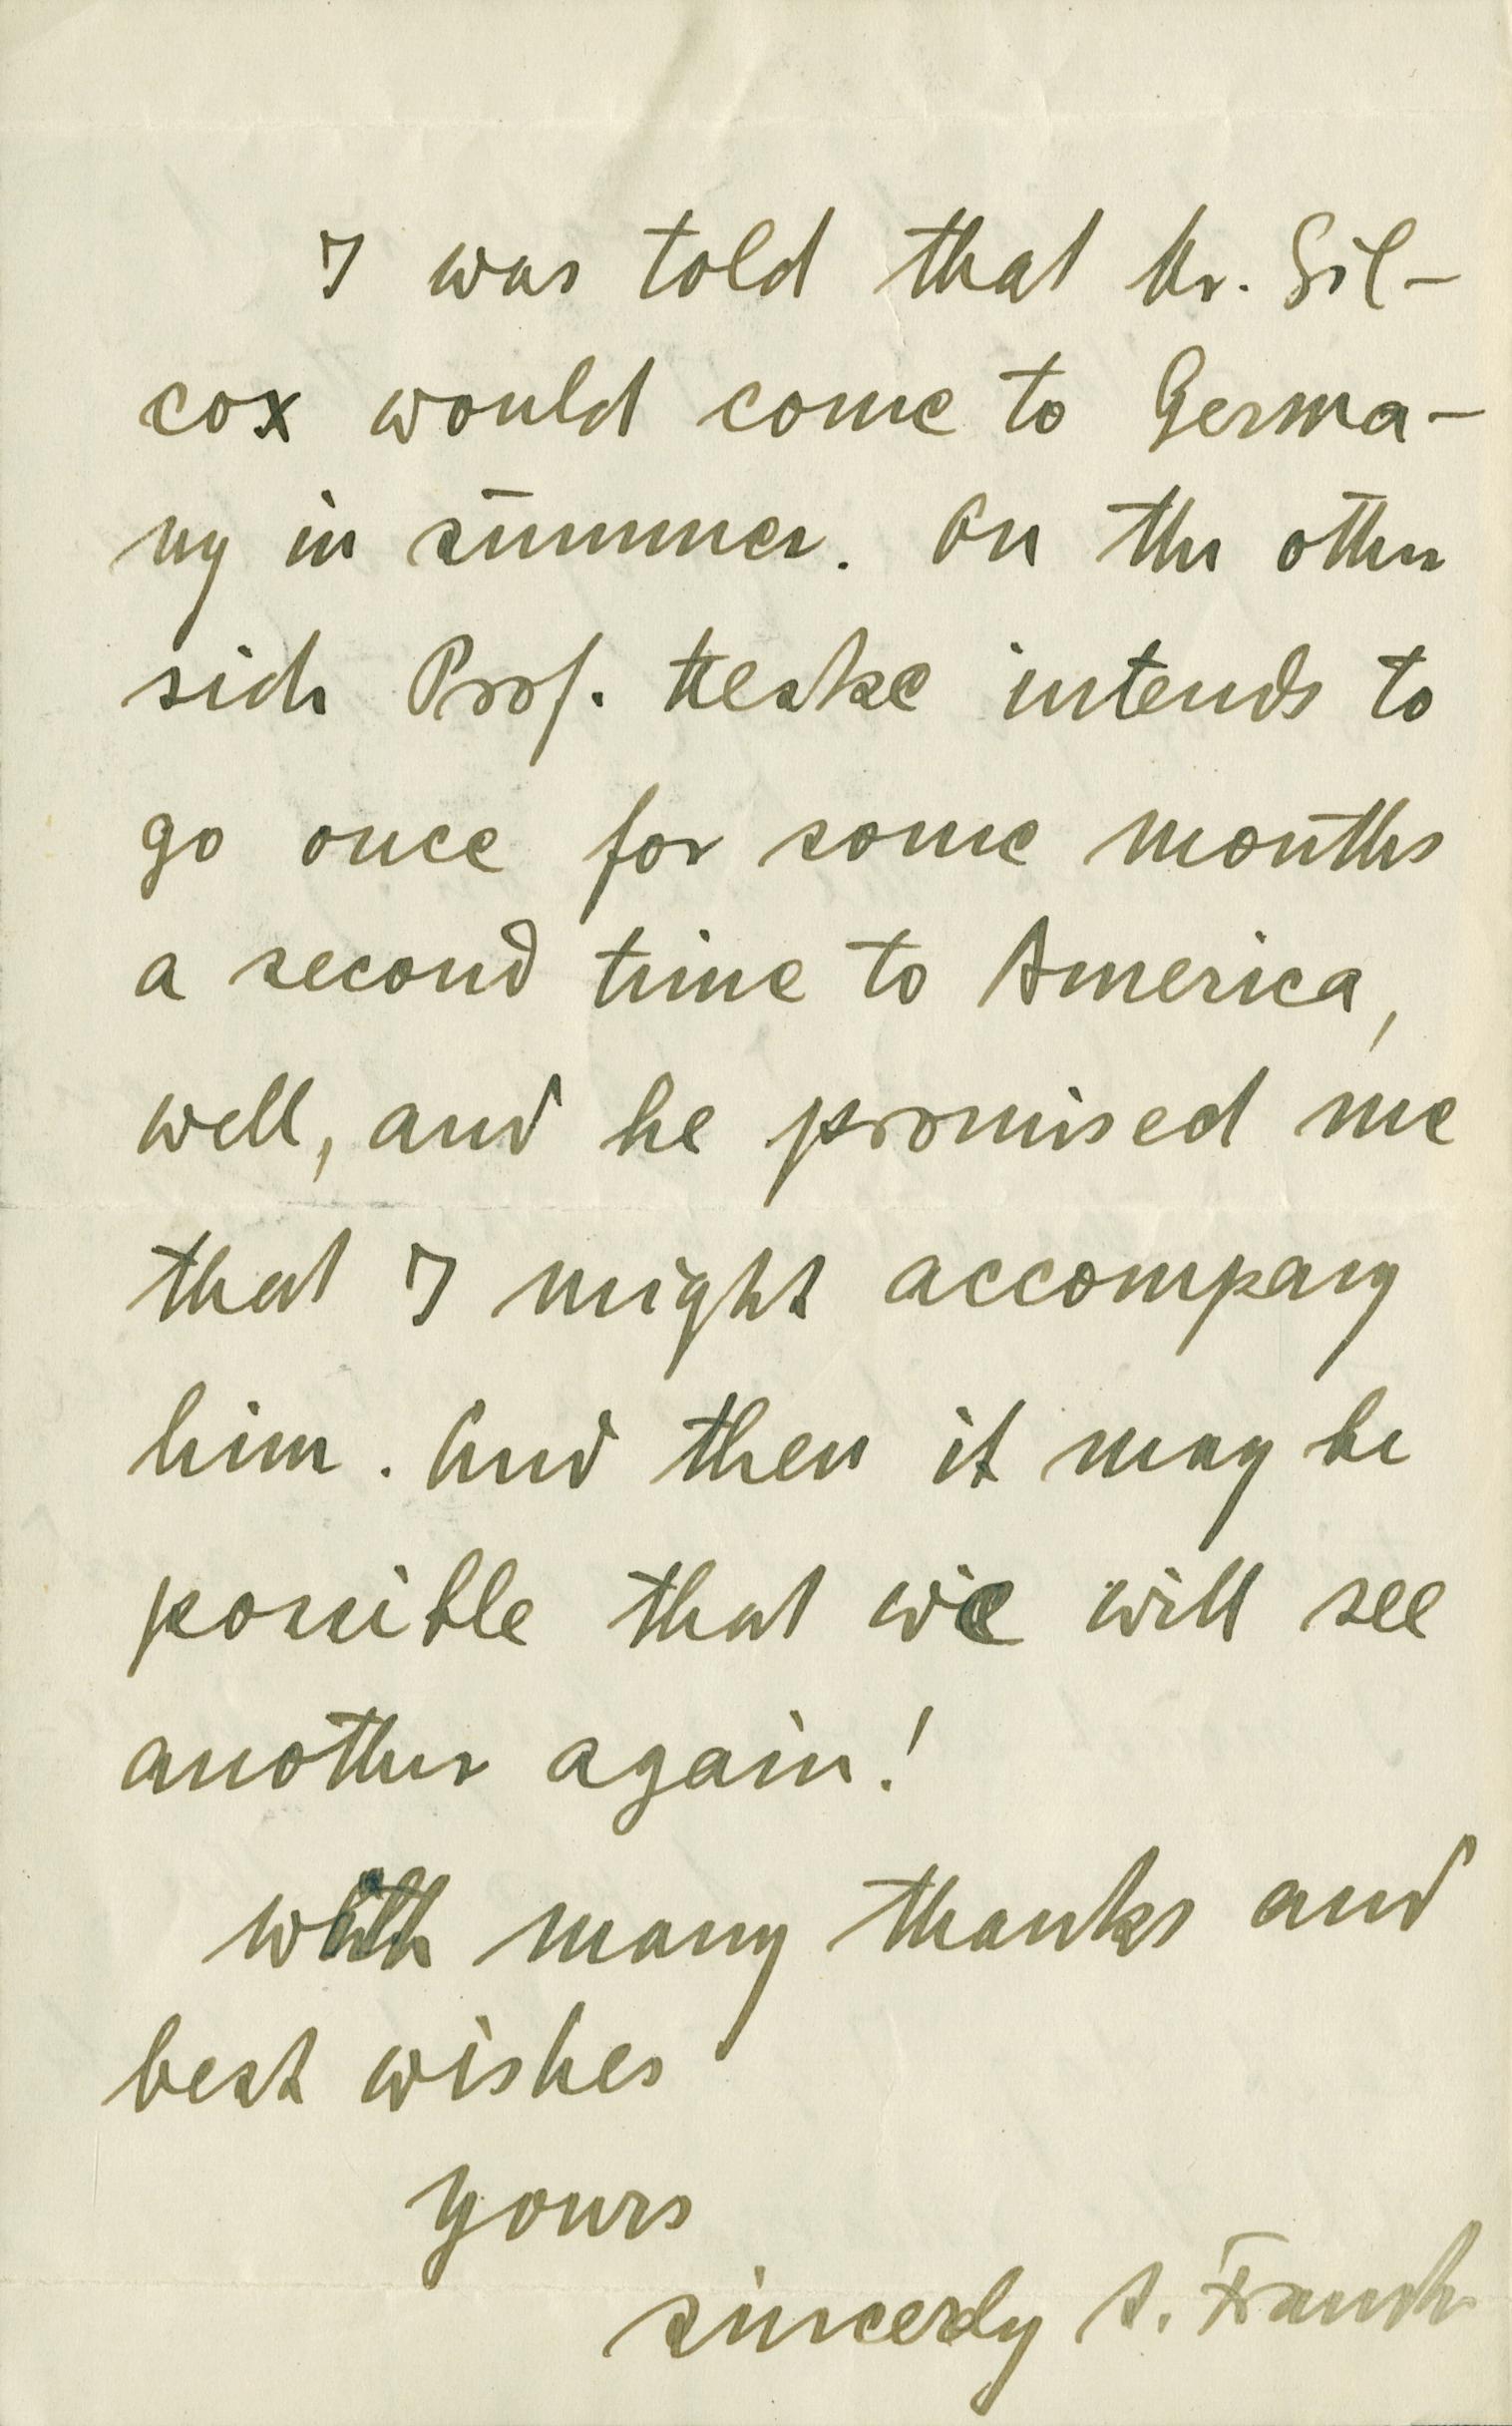 I was told that Mr. Gil-
cox would come to Germa-
ny in summer. On the other
side Prof. Heske intends to
go once for some months
a second time to America,
well, and he promised me
that I might accompany
him. And then it may be
possible that we will see
another again!
With many thanks and
best wishes
Yours
sincerly A.